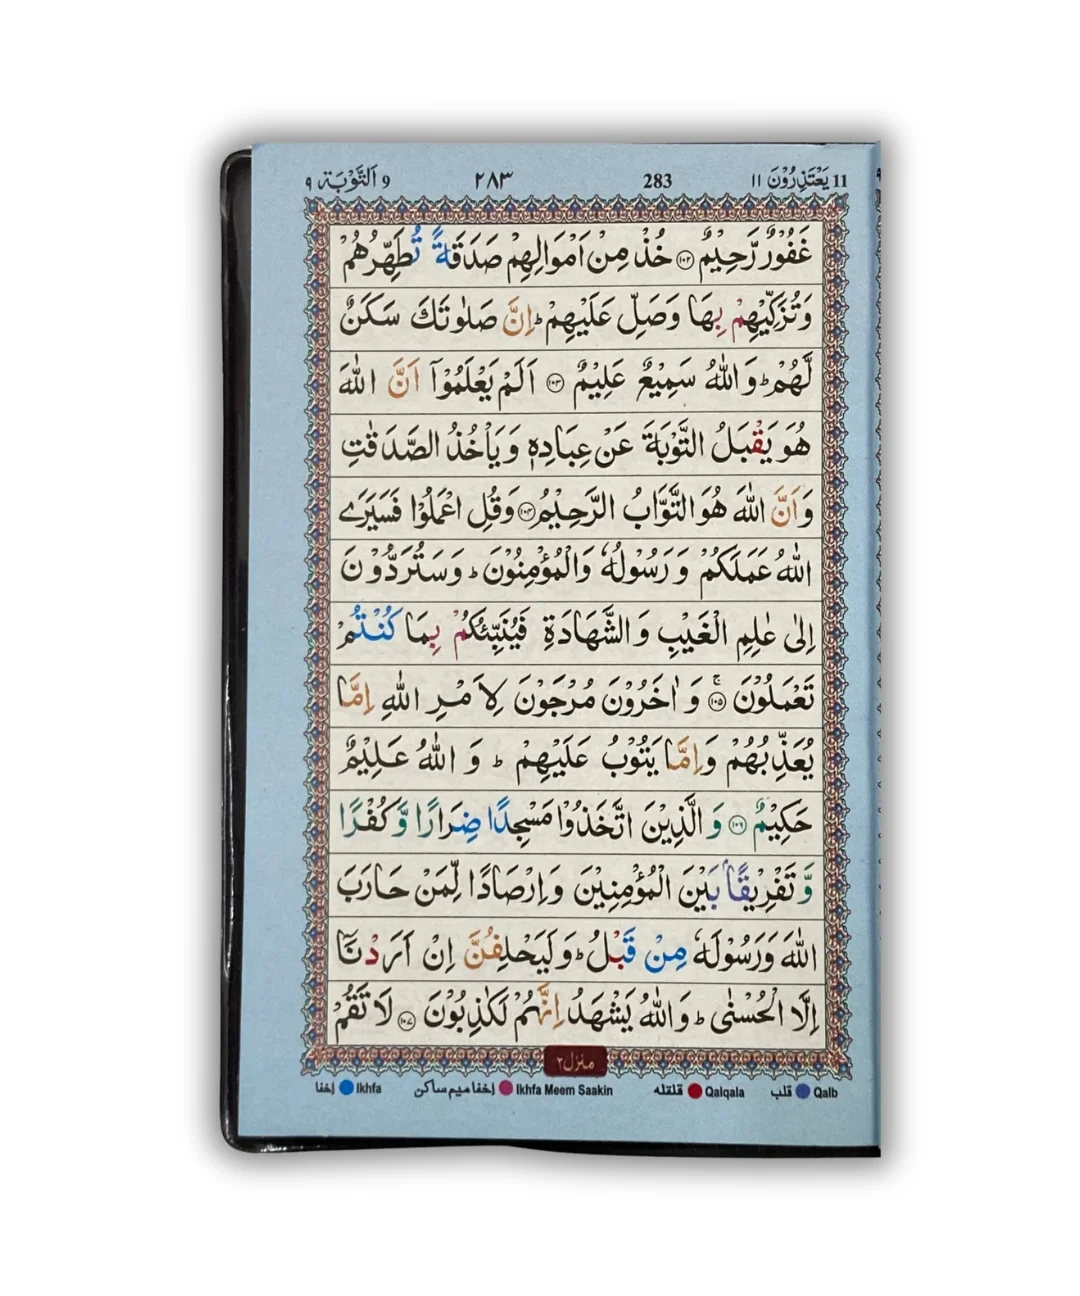 11 یَعْتَذِرُوْنَ ١١ 283 ٢٨٣ 9 اَلتَّوْبَة ٩
غَفُوْرٌ رَّحِیْمٌ ﴿١٠٢﴾ خُذْ مِنْ اَمْوَالِهِمْ صَدَقَةً تُطَهِّرُهُمْ
وَتُزَكِّیْهِمْ بِهَا وَصَلِّ عَلَیْهِمْ ؕ اِنَّ صَلٰوتَكَ سَكَنٌ
لَّهُمْ ؕ وَاللّٰهُ سَمِیْعٌ عَلِیْمٌ ﴿١٠٣﴾ اَلَمْ یَعْلَمُوْۤا اَنَّ اللّٰهَ
هُوَ یَقْبَلُ التَّوْبَةَ عَنْ عِبَادِهٖ وَیَاْخُذُ الصَّدَقٰتِ
وَاَنَّ اللّٰهَ هُوَ التَّوَّابُ الرَّحِیْمُ ﴿١٠٤﴾ وَقُلِ اعْمَلُوْا فَسَیَرَی
اللّٰهُ عَمَلَكُمْ وَرَسُوْلُهٗ وَالْمُؤْمِنُوْنَ ؕ وَسَتُرَدُّوْنَ
اِلٰی عٰلِمِ الْغَیْبِ وَالشَّهَادَةِ فَیُنَبِّئُكُمْ بِمَا كُنْتُمْ
تَعْمَلُوْنَ ۚ ﴿١٠٥﴾ وَاٰخَرُوْنَ مُرْجَوْنَ لِاَمْرِ اللّٰهِ اِمَّا
یُعَذِّبُهُمْ وَاِمَّا یَتُوْبُ عَلَیْهِمْ ؕ وَاللّٰهُ عَلِیْمٌ
حَكِیْمٌ ﴿١٠٦﴾ وَالَّذِیْنَ اتَّخَذُوْا مَسْجِدًا ضِرَارًا وَّكُفْرًا
وَّتَفْرِیْقًۢا بَیْنَ الْمُؤْمِنِیْنَ وَاِرْصَادًا لِّمَنْ حَارَبَ
اللّٰهَ وَرَسُوْلَهٗ مِنْ قَبْلُ ؕ وَلَیَحْلِفُنَّ اِنْ اَرَدْنَاۤ
اِلَّا الْحُسْنٰی ؕ وَاللّٰهُ یَشْهَدُ اِنَّهُمْ لَكٰذِبُوْنَ ﴿١٠٧﴾ لَا تَقُمْ
منزل ٢
Qalb قلب Qalqala قلتله Ikhfa Meem Saakin إخفا میم ساکن Ikhfa إخفا